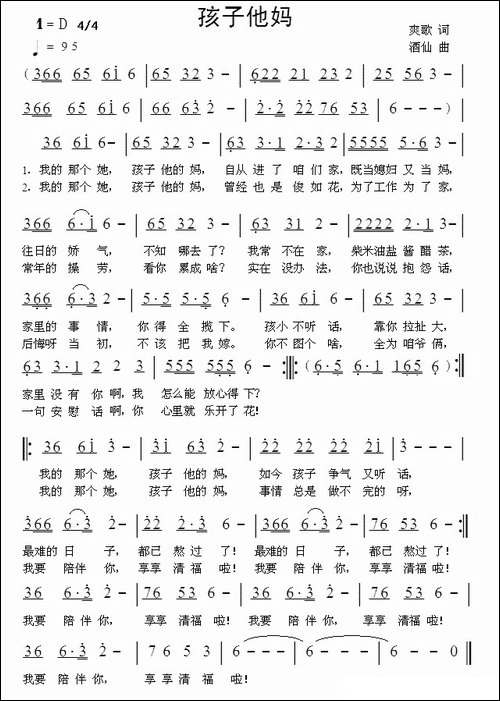 孩子他妈
1=D 4/4
爽歌 词
♩=95
酒仙 曲
(366 65 61̇ 6 | 65 32 3 - | 622 21 23 2 | 25 56 3 -
366 65 61̇ 6 | 66 63 2 - | 2·2 22 76 53 | 6 - - - )
36 61̇ 6 - | 65 32 3 - | 63 3·1 2·3 2 | 5555 5·6 3 -
1. 我的 那个 她, 孩子 他的 妈, 自从 进了 咱们 家, 既当媳妇 又当 妈,
2. 我的 那个 她, 孩子 他的 妈, 曾经 也是 俊如 花, 为了工作 为了 家,
366 6·1̇ 6 - | 65 32 3 - | 63 31 2 - | 2222 2·1 3 -
往日的 娇 气, 不知 哪去 了? 我常 不在 家, 柴米油盐 酱醋 茶,
常年的 操 劳, 看你 累成 啥? 实在 没办 法, 你也说说 抱怨 话,
366 6·3 2 - | 5·5 5·5 6 - | 36 61̇ 6 - | 65 32 3 -
家里的 事 情, 你得 全揽 下。 孩小 不听 话, 靠你 拉扯 大,
后悔呀 当 初, 不该 把我 嫁。 你不 图个 啥, 全为 咱爷 俩,
63 3·1 2 2 3 | 555 555 6 - :‖: (6·5 6·1 165 6) :‖
家里 没有 你 啊, 我 怎么能 放心得 下?
一句 安慰 话 啊, 你 心里就 乐开了 花!
‖: 36 61̇ 3̇ - | 63̇ 1̇3̇ 2̇ - | 2̇2̇ 2̇2̇ 2̇2̇ 2̇1̇ | 3̇ - - -
我的 那个 她, 孩子 他的 妈, 如今 孩子 争气 又听 话,
我的 那个 她, 孩子 他的 妈, 事情 总是 做不 完的 呀,
366 6·3̇ 2̇ - | 2̇2̇ 2̇·3̇ 6 - | 366 6·3̇ 2̇ - | 76 53 6 - :‖
最难的 日 子, 都已 熬过 了! 最难的 日 子, 都已 熬过 了!
我要 陪伴 你, 享享 清福 啦! 我要 陪伴 你, 享享 清福 啦!
36 6·3̇ 2̇ - | 76 53 6 - | 36 6·3̇ 2̇ - | 76 53 6 -
我要 陪伴 你, 享享 清福 啦! 我要 陪伴 你, 享享 清福 啦!
36 6·3̇ 2̇ - | 7 6 5 3 | 6 - - - | 6 - - - | 6 - - 0 ‖
我要 陪伴 你, 享享清福 啦!